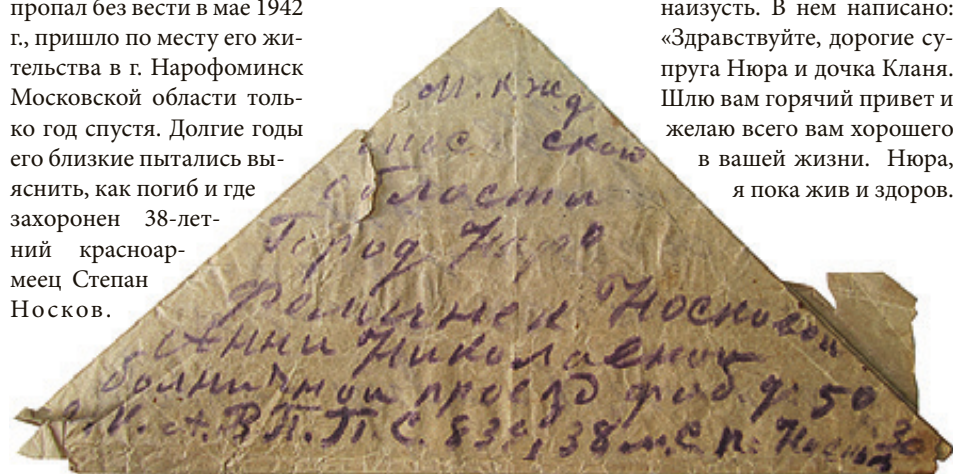 пропал без вести в мае 1942
г., пришло по месту его жи-
тельства в г. Нарофоминск
Московской области толь-
ко год спустя. Долгие годы
его близкие пытались вы-
яснить, как погиб и где
захоронен 38-лет-
ний красноар-
меец Степан
Носков.
наизусть. В нем написано:
«Здравствуйте, дорогие су-
пруга Нюра и дочка Кланя.
Шлю вам горячий привет и
желаю всего вам хорошего
в вашей жизни. Нюра,
я пока жив и здоров.
М. к ж д
ской
области
Город Наро
Фоминск Носковой
Анни Николаевной
болничной проезд фаб. д. 50
П. С. 83